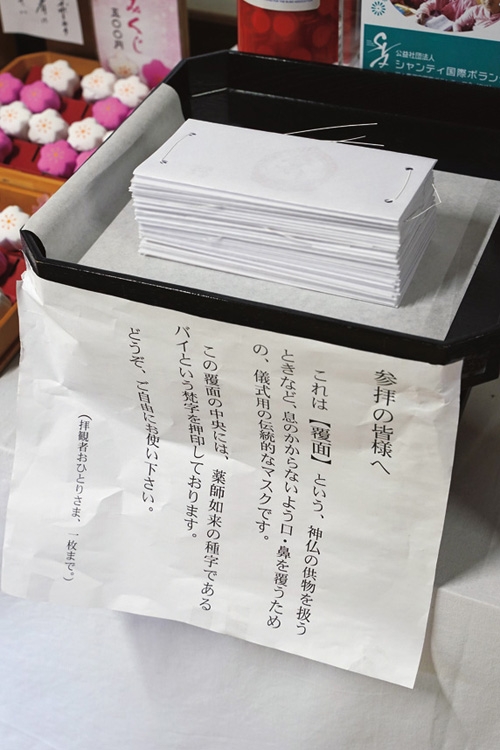 みくじ
五〇〇円
公益社団法人
シャンティ国際ボラン
参拝の皆様へ
これは【覆面】という、神仏の供物を扱う
ときなど、息のかからないよう口・鼻を覆うため
の、儀式用の伝統的なマスクです。
この覆面の中央には、薬師如来の種字である
バイという梵字を押印しております。
どうぞ、ご自由にお使い下さい。
（拝観者おひとりさま、一枚まで。）